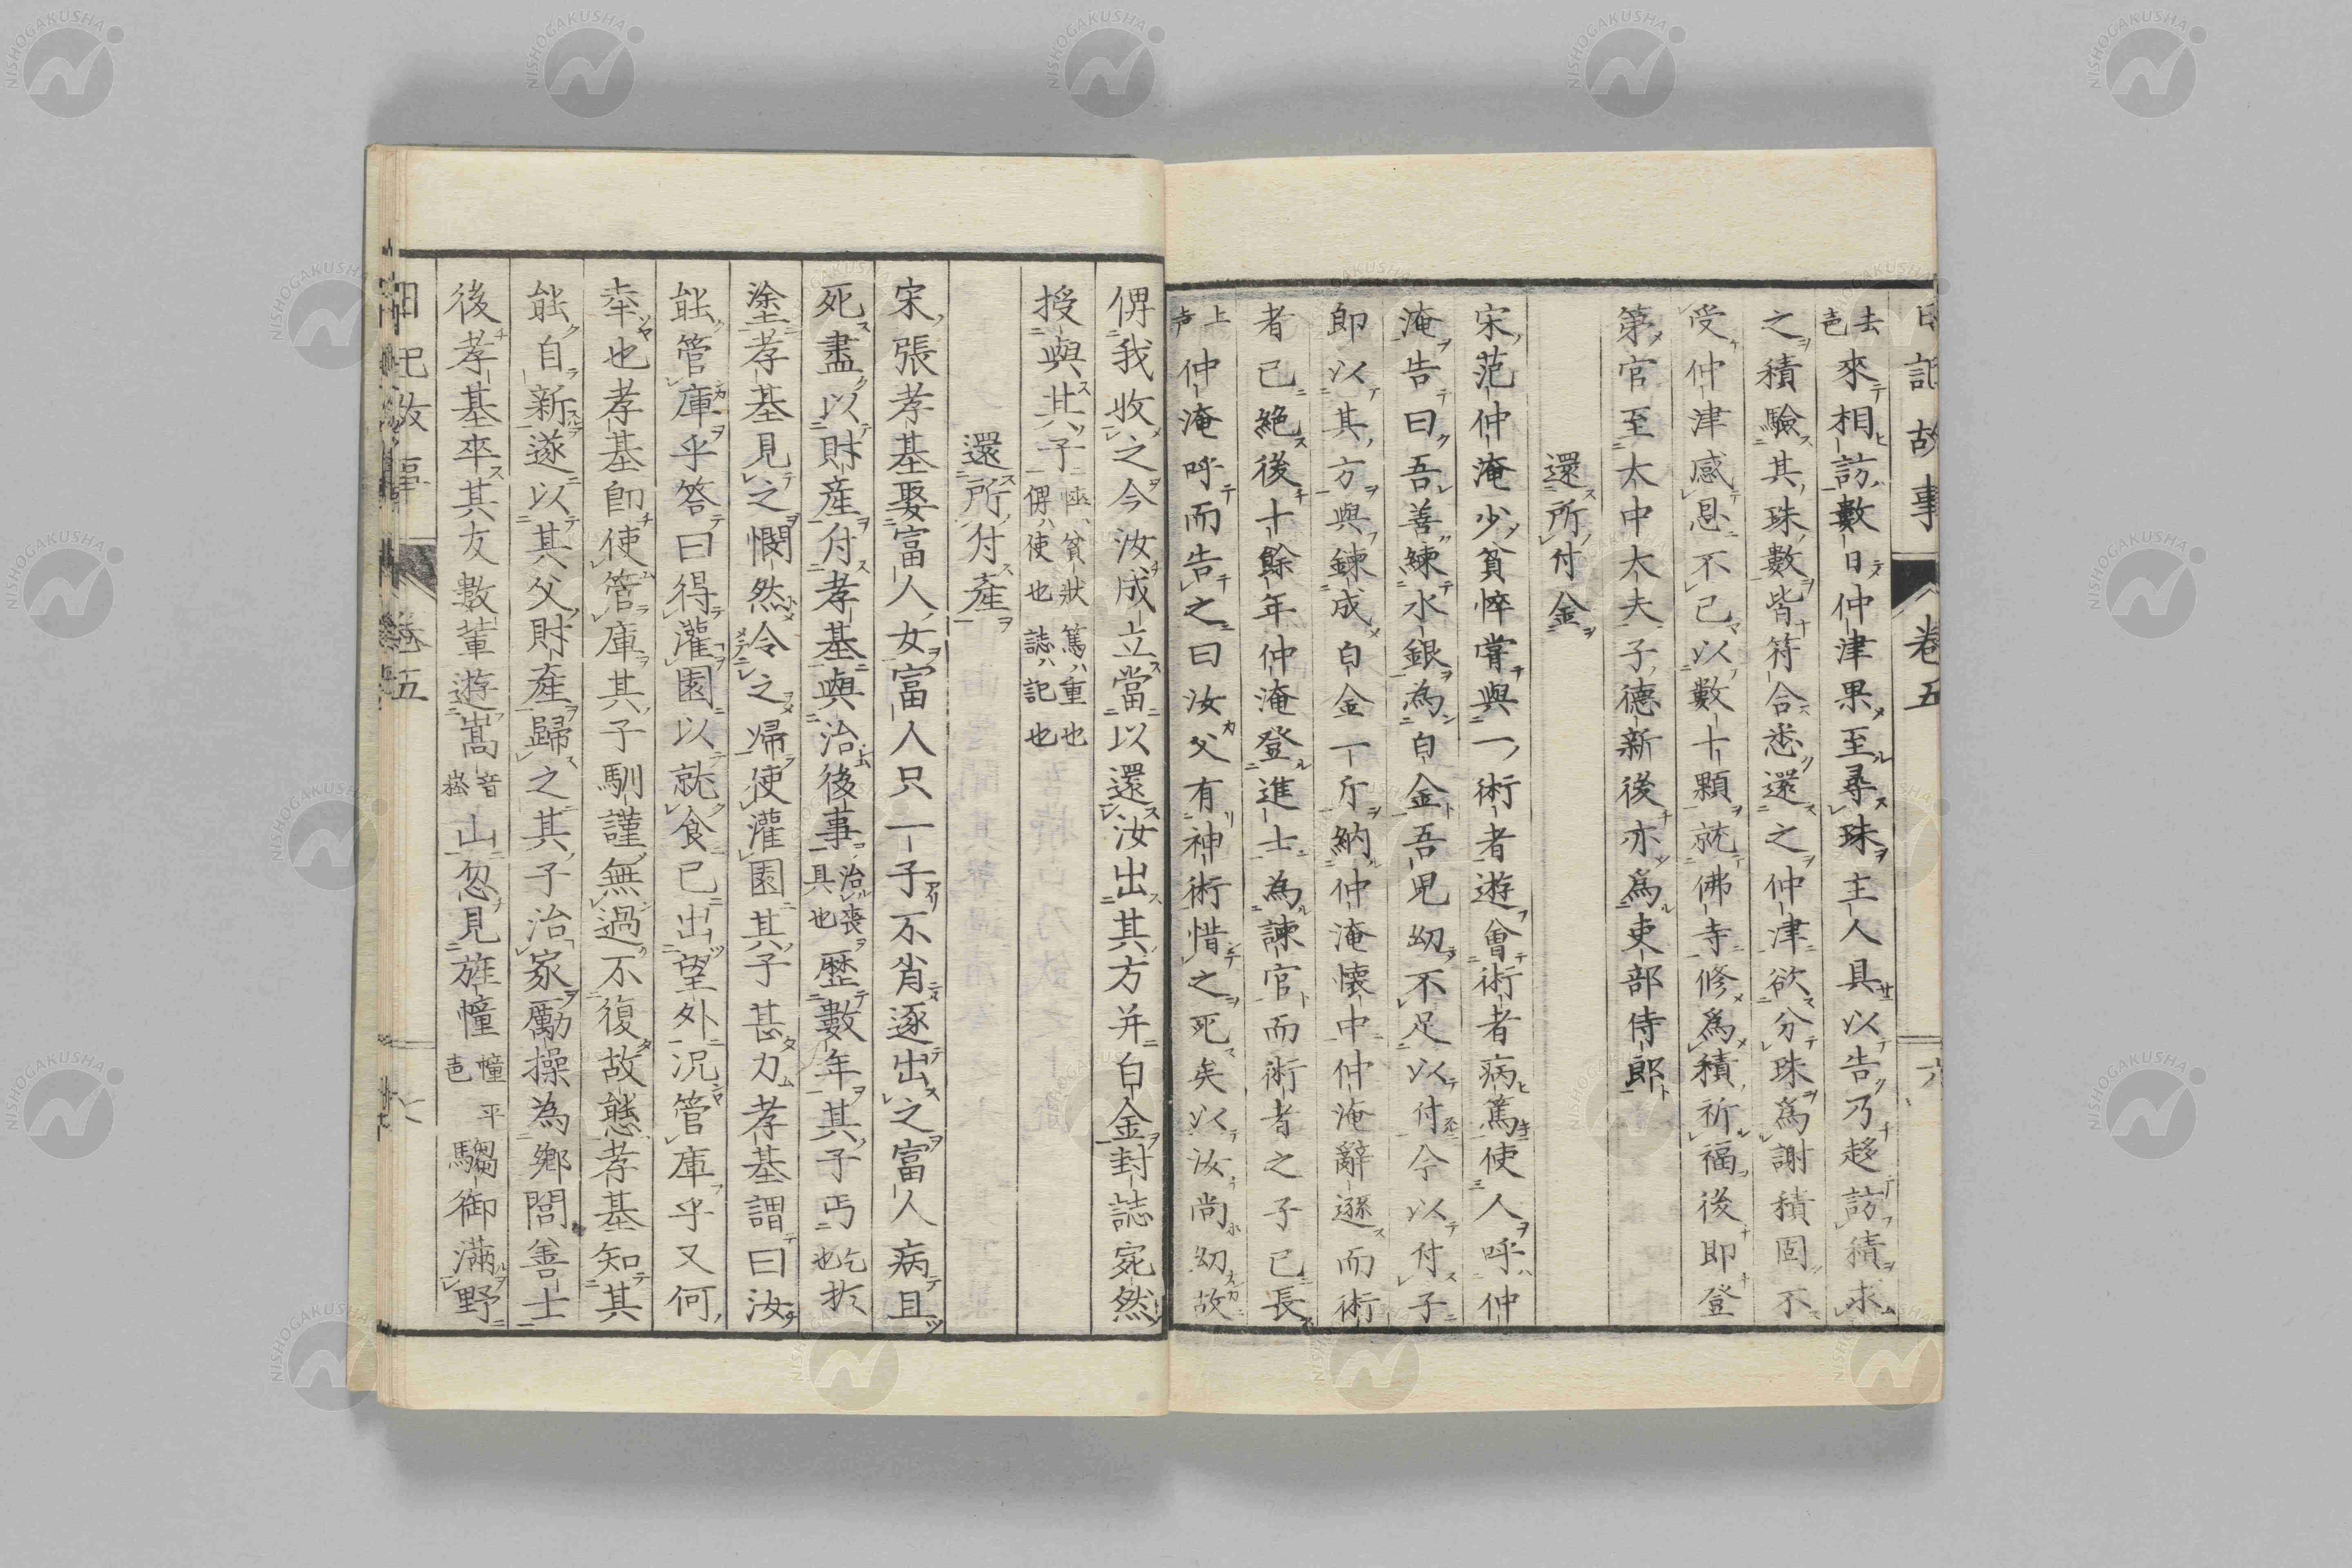 日記故事 卷五 六
去声來相訪數日仲津果至尋珠主人具以告乃趍訪積求
之積驗其珠數皆符合悉還之仲津欲分珠爲謝積固不
受仲津感恩不已以數十顆就佛寺修爲積祈福後即登
第官至太中大夫子德新後亦爲吏部侍郎
還所付金
宋范仲淹少貧悴嘗與一術者遊會術者病篤使人呼仲
淹告曰吾善練水銀為白金吾児幼不足以付今以付子
即以其方與錬成白金一斤納仲淹懐中仲淹辭遜而術
者已絶後十餘年仲淹登進士為諫官而術者之子已長
上声仲淹呼而告之曰汝父有神術惜之死矣以汝尚幼故
俾我收之今汝成立當以還汝出其方并白金封誌宛然
授與其子悴ハ貧狀篤ハ重也俾ハ使也誌ハ記也
還所付產
宋張孝基娶富人女富人只一子不肖逐出之富人病且
死盡以財產付孝基與治後事治喪具也歴數年其子丐乞也扵
塗孝基見之憫然令之帰使灌園其子甚力孝基謂曰汝
能管庫乎答曰得灌園以就食已出望外况管庫乎又何
幸也孝基即使管庫其子馴謹無過不復故態孝基知其
能自新遂以其父財產歸之其子治家勵操為鄉閭善士
後孝基卒其友數輩遊嵩音崧山忽見旌幢幢平声騶御滿野
日記故事 卷五 七
NISHOGAKUSHA